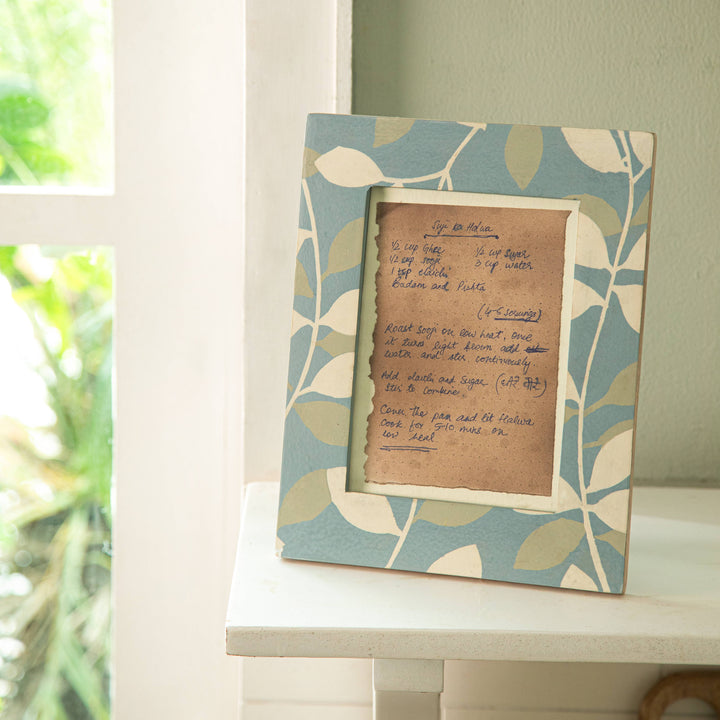 Suji ka Halwa
½ cup Ghee ½ cup Sugar
½ cup sooji 3 cup water
1 tsp elaichi
Badam and Pishta
(4-5 servings)
Roast sooji on low heat, once
it turns light brown add
water and stir continuously
Add elaichi and Sugar (धीरे धीरे)
Stir to combine
Cover the pan and let Halwa
Cook for 5-10 mins on
low heat